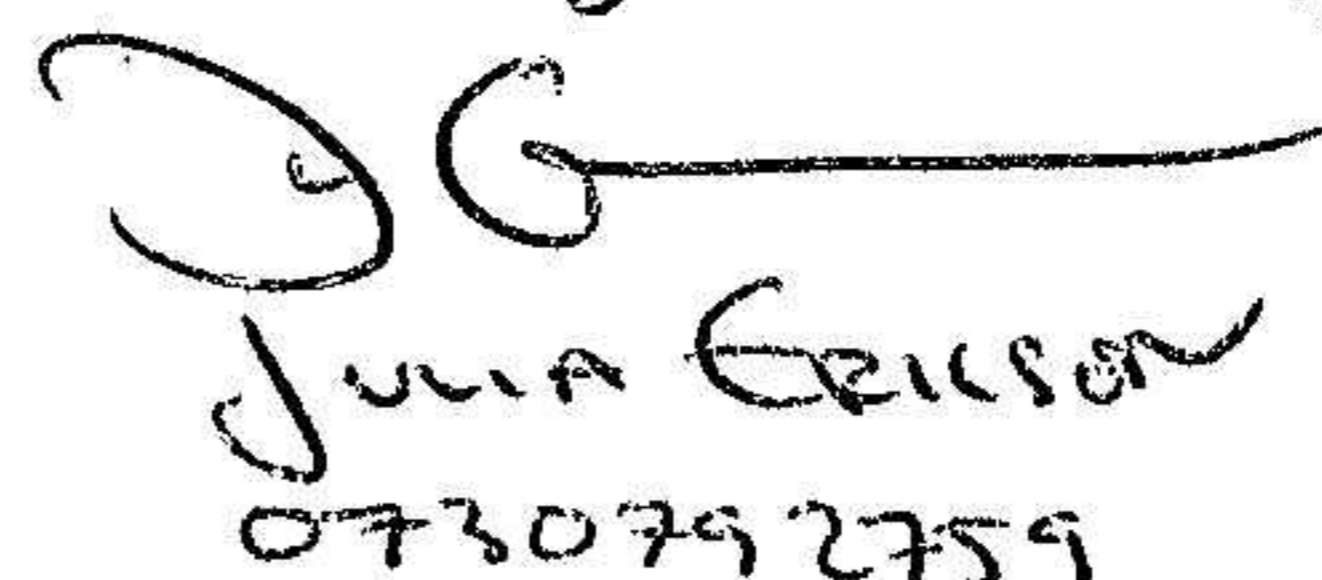 Julia Erikson
0730792759